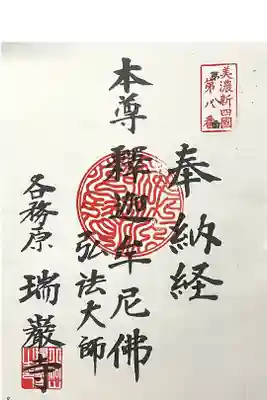 美濃新四國
第八番
奉納経
本尊釋迦牟尼佛
弘法大師
各務原
瑞巖寺